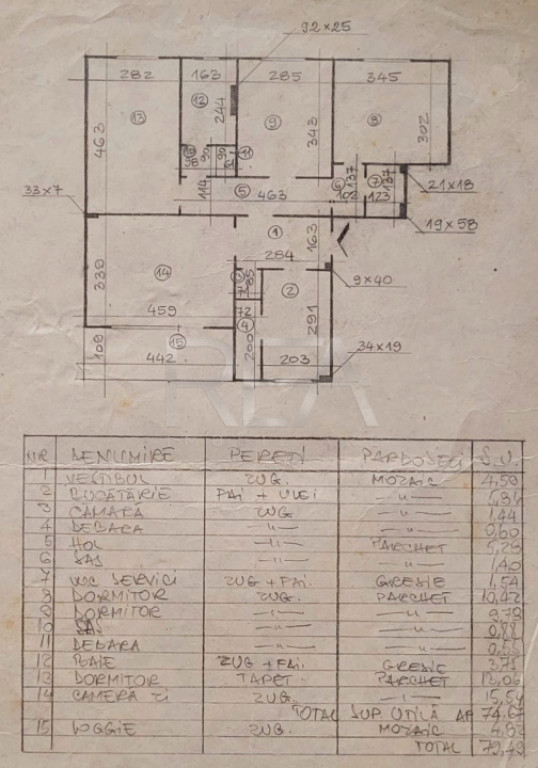 92×25
282
163
285
345
12
13
9
8
244
463
343
302
10
11
98
90
90
137
137
7
6
5
463
102
123
21×18
114
33×7
19×58
1
163
284
9×40
339
14
3
85
2
71
459
72
4
291
15
109
442
200
203
34×19
REA
NR DENUMIRE PEREȚI PARDOSELI S.U.
1 VESTIBUL ZUG. MOZAIC 4,50
2 BUCĂTĂRIE FAI + ULEI —"—
3 CAMARA ZUG —"— 1,44
4 DEBARA —"— —"—
5 HOL —"— PARCHET 5,28
6 SAS —"— —"— 1,40
7 WC SERVICI ZUG + FAI. GRESIE 1,54
8 DORMITOR ZUG. PARCHET 10,42
9 DORMITOR —"— —"— 9,79
10 SAS —"— —"— 0,88
11 DEBARA —"— —"— 0,55
12 BAIE ZUG + FAI. GRESIE 3,75
13 DORMITOR TAPET PARCHET 13,06
14 CAMERA ZI ZUG. —"— 15,54
TOTAL SUP. UTILĂ AP 74,67
15 LOGGIE ZUG. MOZAIC 4,82
TOTAL 79,49